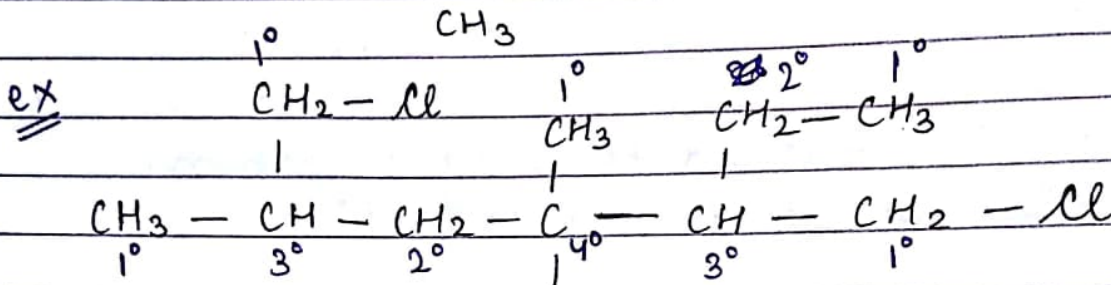 CH3
1° 2° 1°
ex CH2 - Cl 1° CH2 - CH3
CH3
| | |
CH3 - CH - CH2 - C - CH - CH2 - Cl
1° 3° 2° 4° 3° 1°
|